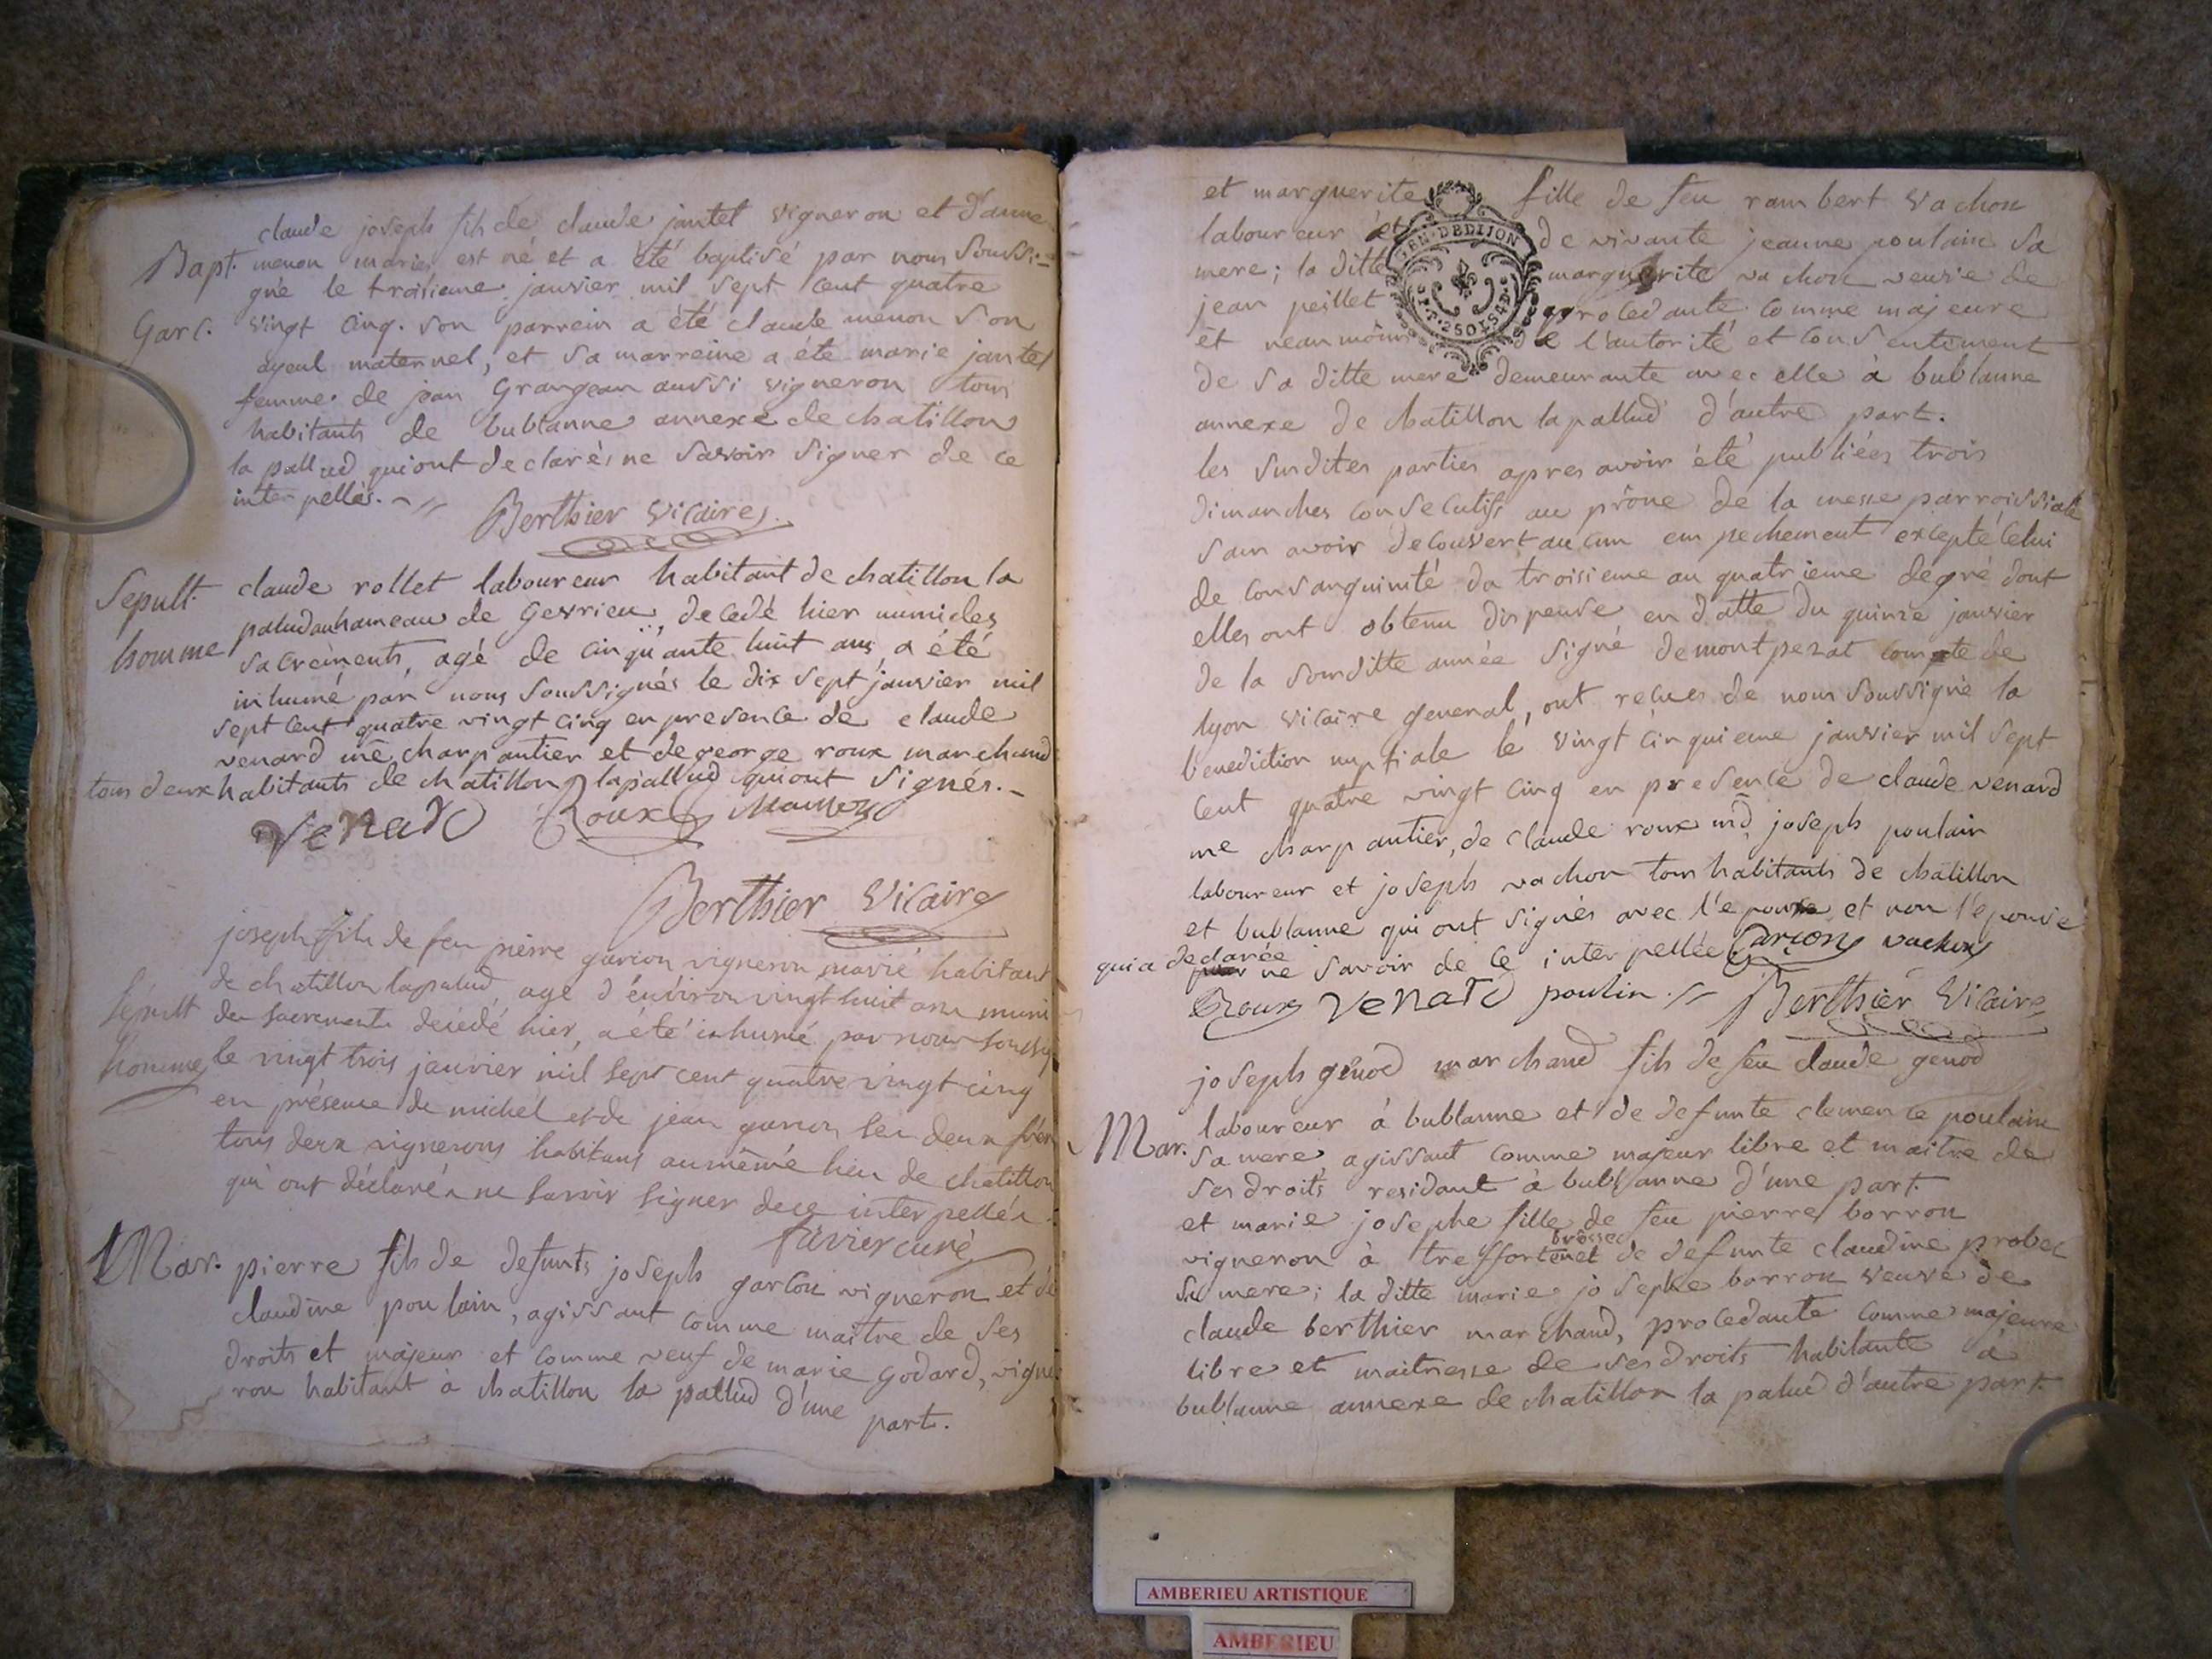 claude joseph fils de claude jantet vigneron et d'anne
Bapt. menon mariés est né et a été baptisé par nous soussi-
gné le troisieme janvier mil sept cent quatre
Garc. vingt cinq. son parrein a été claude menon son
ayeul maternel, et sa marreine a été marie jantet
femme de jean Grangean aussi vigneron tous
habitants de bublanne annexe de chatillon
la pallud qui ont declarés ne savoir signer de ce
interpellés.
Berthier vicaire
Sepult. claude rollet laboureur habitant de chatillon la
palud au hameau de Gevrieu, decedé hier muni des
homme sacrements, agé de cinquante huit ans, a été
inhumé par nous soussignés le dix sept janvier mil
sept cent quatre vingt cinq en presence de claude
venard me charpantier et de george roux marchand
tous deux habitants de chatillon lapallud qui ont signés.
venard Roux
Berthier vicaire
joseph fils de feu pierre garcon vigneron marié habitant
de chatillon lapalud, age d'environ vingt huit ans muni
Sépult des sacrements decédé hier, a été inhumé par nous soussig
homme le vingt trois janvier mil sept cent quatre vingt cinq
en présence de michel et de jean garcon ses deux frer
tous deux vignerons habitans au même lieu de chatillon
qui ont déclarés ne savoir signer de ce interpellés
favier curé
Mar. pierre fils de defunts joseph garcon vigneron et de
claudine poulain, agissant comme maitre de ses
droits et majeur et comme veuf de marie Godard, vigne
ron habitant à chatillon la pallud d'une part.
et marguerite fille de feu rambert vachon
laboureur et de vivante jeanne poulain sa
mere; la ditte marguerite vachon veuve de
jean peillet procedante comme majeure
et neanmoins de l'autorité et consentiment
de sa ditte mere demeurante avec elle à bublanne
annexe de chatillon lapallud d'autre part.
les susdites parties apres avoir été publiées trois
dimanches consecutifs au prône de la messe parroissiale
sans avoir decouvert aucun empechement excepté celui
de consanguinité du troisieme au quatrieme degré dont
elles ont obtenu dispense en datte du quinze janvier
de la susditte année signé demontpezat compte de
lyon vicaire general, ont reçues de nous soussigné la
benediction nuptiale le vingt cinquieme janvier mil sept
cent quatre vingt cinq en presence de claude venard
me charpantier, de claude roux md joseph poulain
laboureur et joseph vachon tous habitants de chatillon
et bublanne qui ont signés avec l'epoux et non l'epouse
qui a declarée ne savoir de ce interpellée Garcon vachon
Roux venard poulin. Berthier vicaire
joseph genod marchand fils de feu claude genod
laboureur à bublanne et de defunte clemence poulain
Mar. sa mere agissant comme majeur libre et maitre de
ses droits residant à bublanne d'une part.
et marie josephe fille de feu pierre borron
vigneron à treffort et de defunte claudine
sa mere; la ditte marie josephe borron veuve de
claude berthier marchand, procedante comme majeure
libre et maitresse de ses droits habitante à
bublanne annexe de chatillon la palud d'autre part.
GEN. DE DIJON
AMBERIEU ARTISTIQUE
AMBERIEU